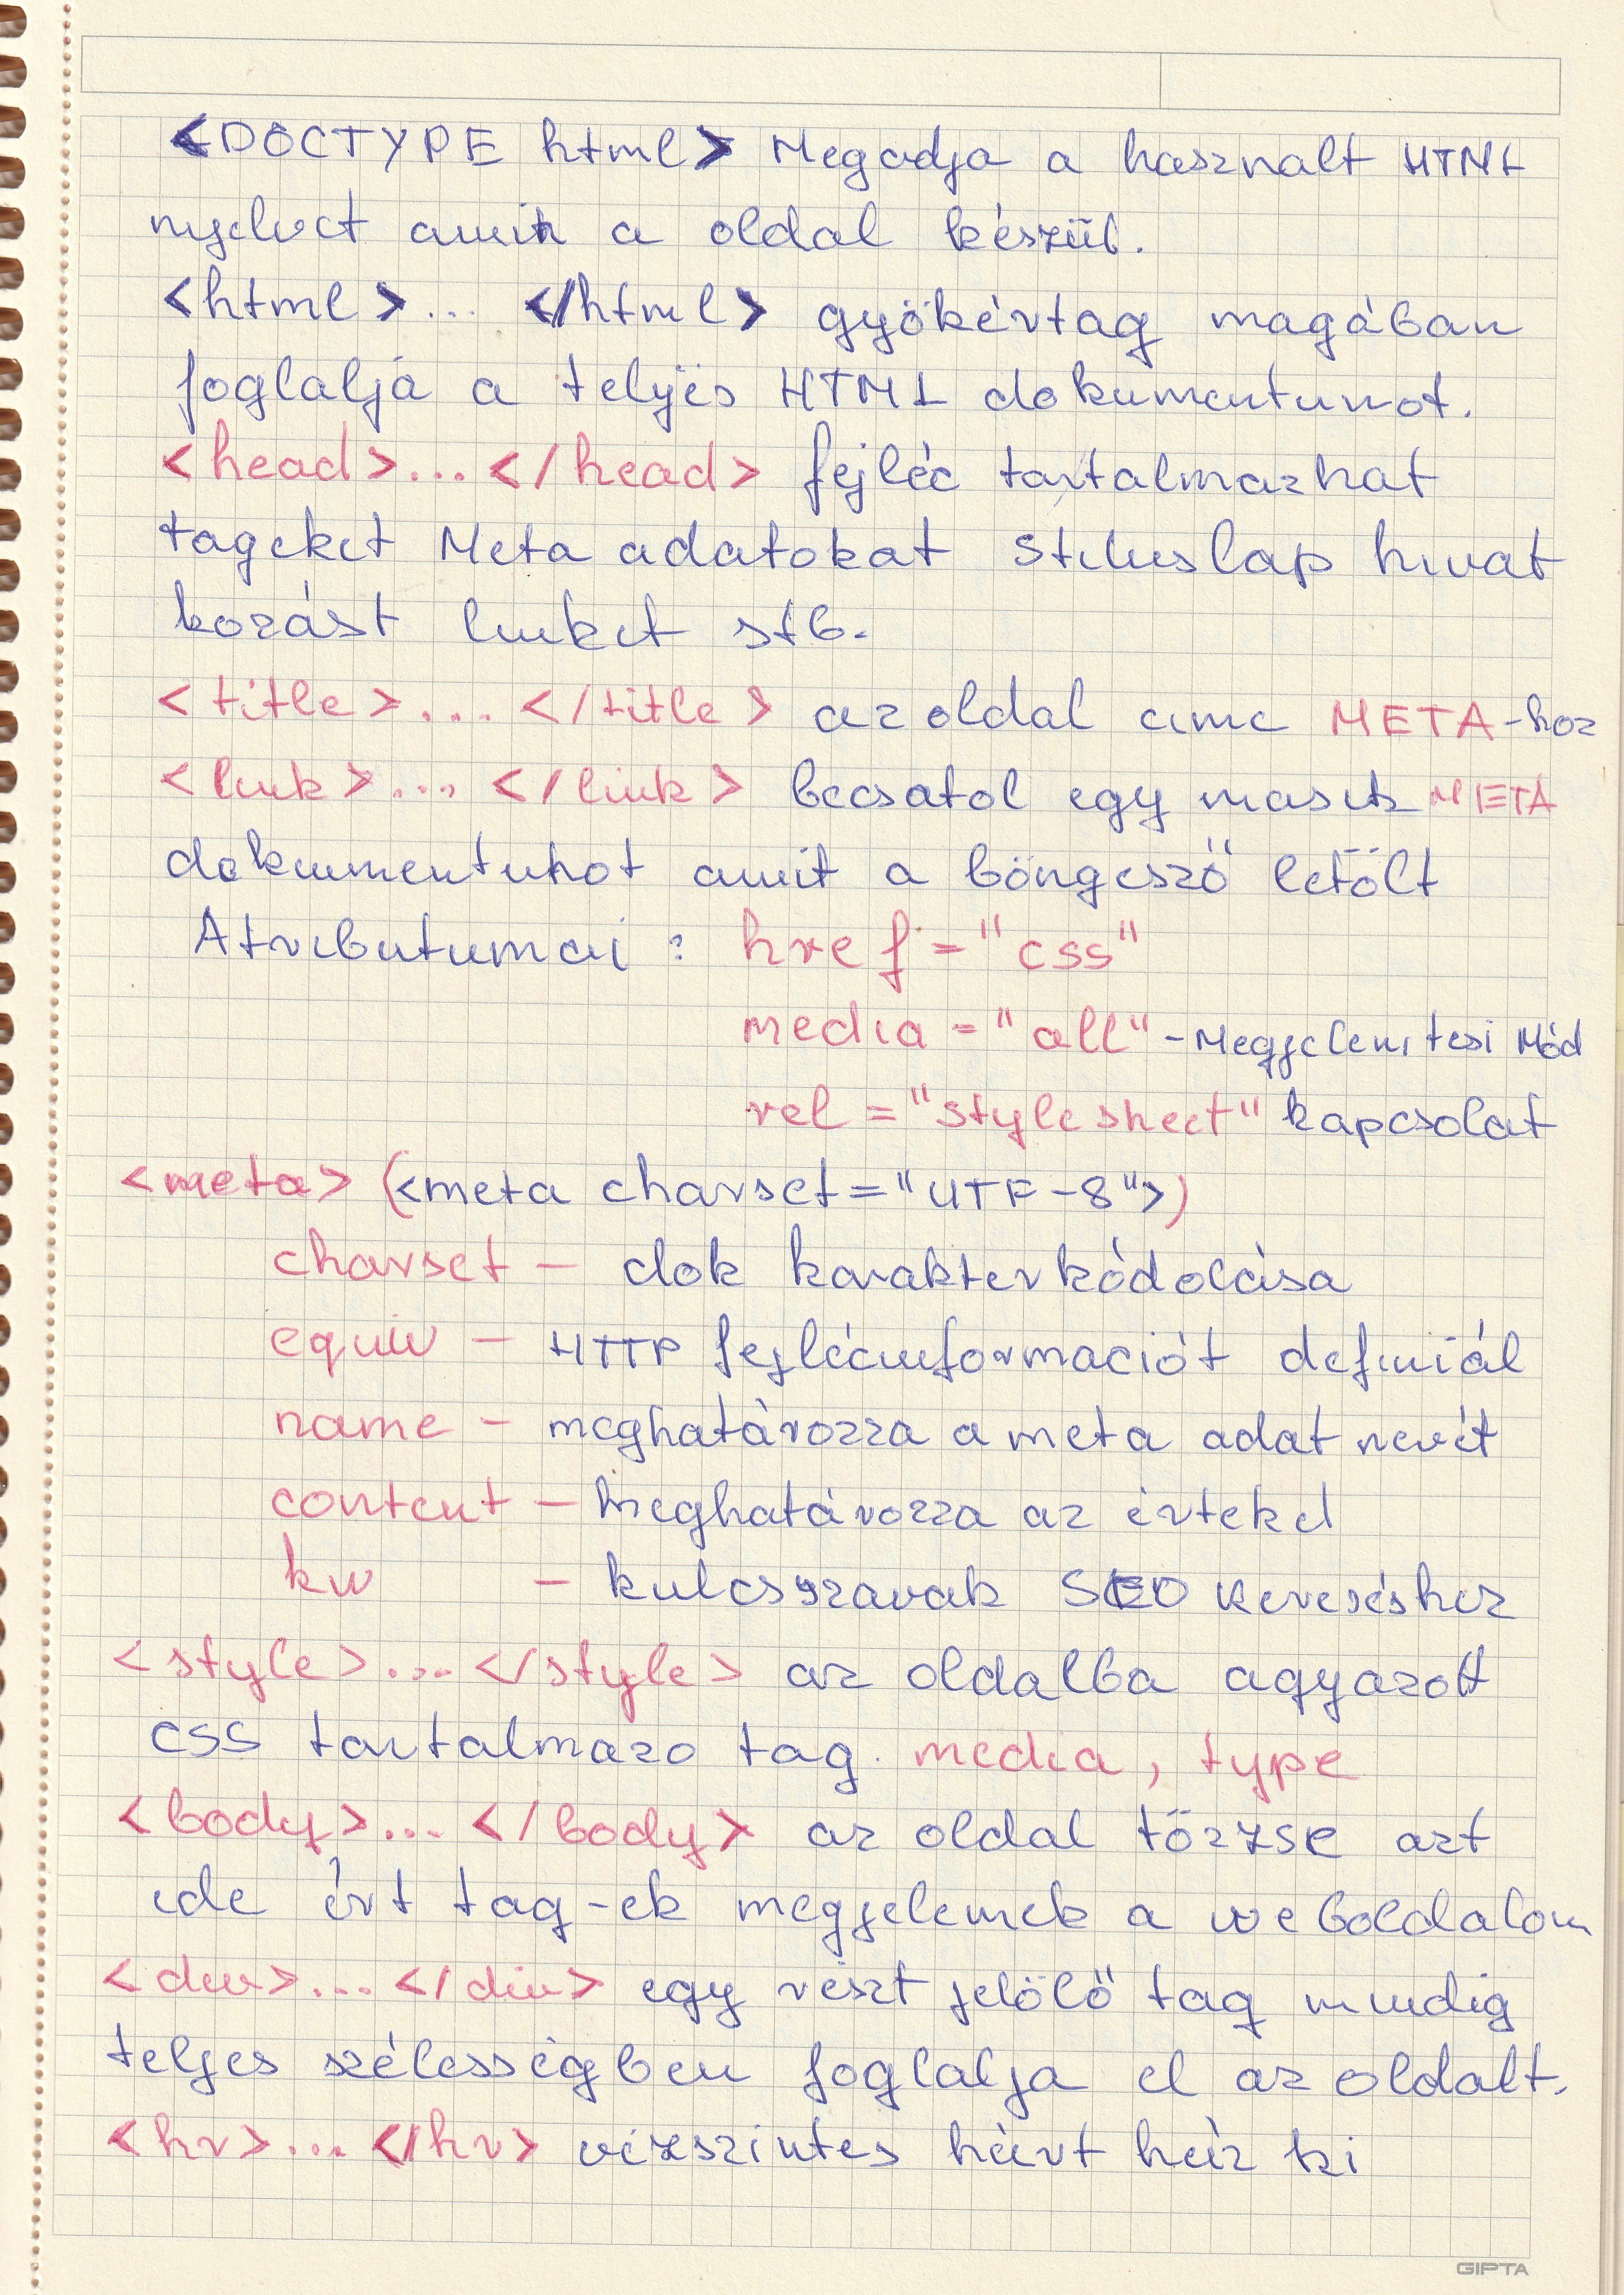 <DOCTYPE html> Megadja a hasznalt HTML
nyelvet amin a oldal készül.
<html>... </html> gyökértag magában
foglalja a teljes HTML dokumentumot.
<head>...</head> fejléc tartalmazhat
tageket Meta adatokat stiluslap hivat
kozást linket stb.
<title>...</title> az oldal cime META-hoz
<link>... </link> becsatol egy masik META
dokumentumot amit a böngésző letölt
Atributumai : href="css"
media="all" - Megjelenitesi Mód
rel="stylesheet" kapcsolat
<meta> (<meta charset="UTF-8">)
charset - dok karakterkódolása
equiv - HTTP fejlécinformaciót definiál
name - meghatározza a meta adat nevét
content - meghatározza az érteket
kw - kulcsszavak SEO kereséshez
<style>...</style> az oldalba agyazott
css tartalmazo tag. media, type
<body>...</body> az oldal törzse azt
ide írt tag-ek megjelennek a weboldalon
<div>...</div> egy részt jelölő tag mindig
teljes szélességben foglalja el az oldalt.
<hr>... </hr> vízszintes hárt ház ki
GIPTA